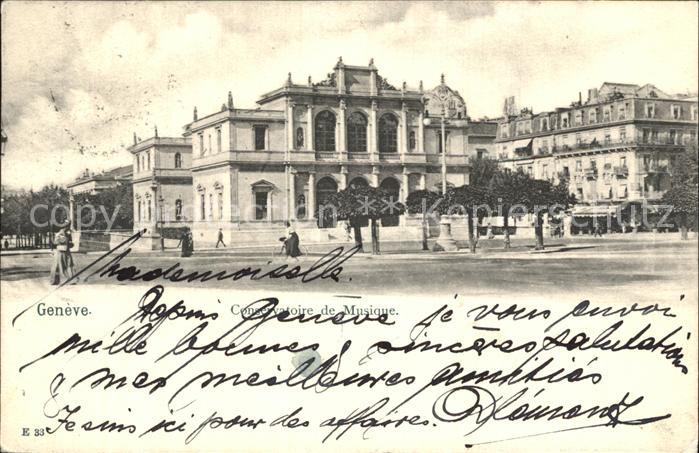 Mademoiselle.
Genève. Conservatoire de Musique.
Depuis Genève je vous envoi
mille bonnes & sincères salutations
& mes meilleures amitiés
E 33 Je suis ici pour des affaires.
copyright collection-bildpostkarten Schutz